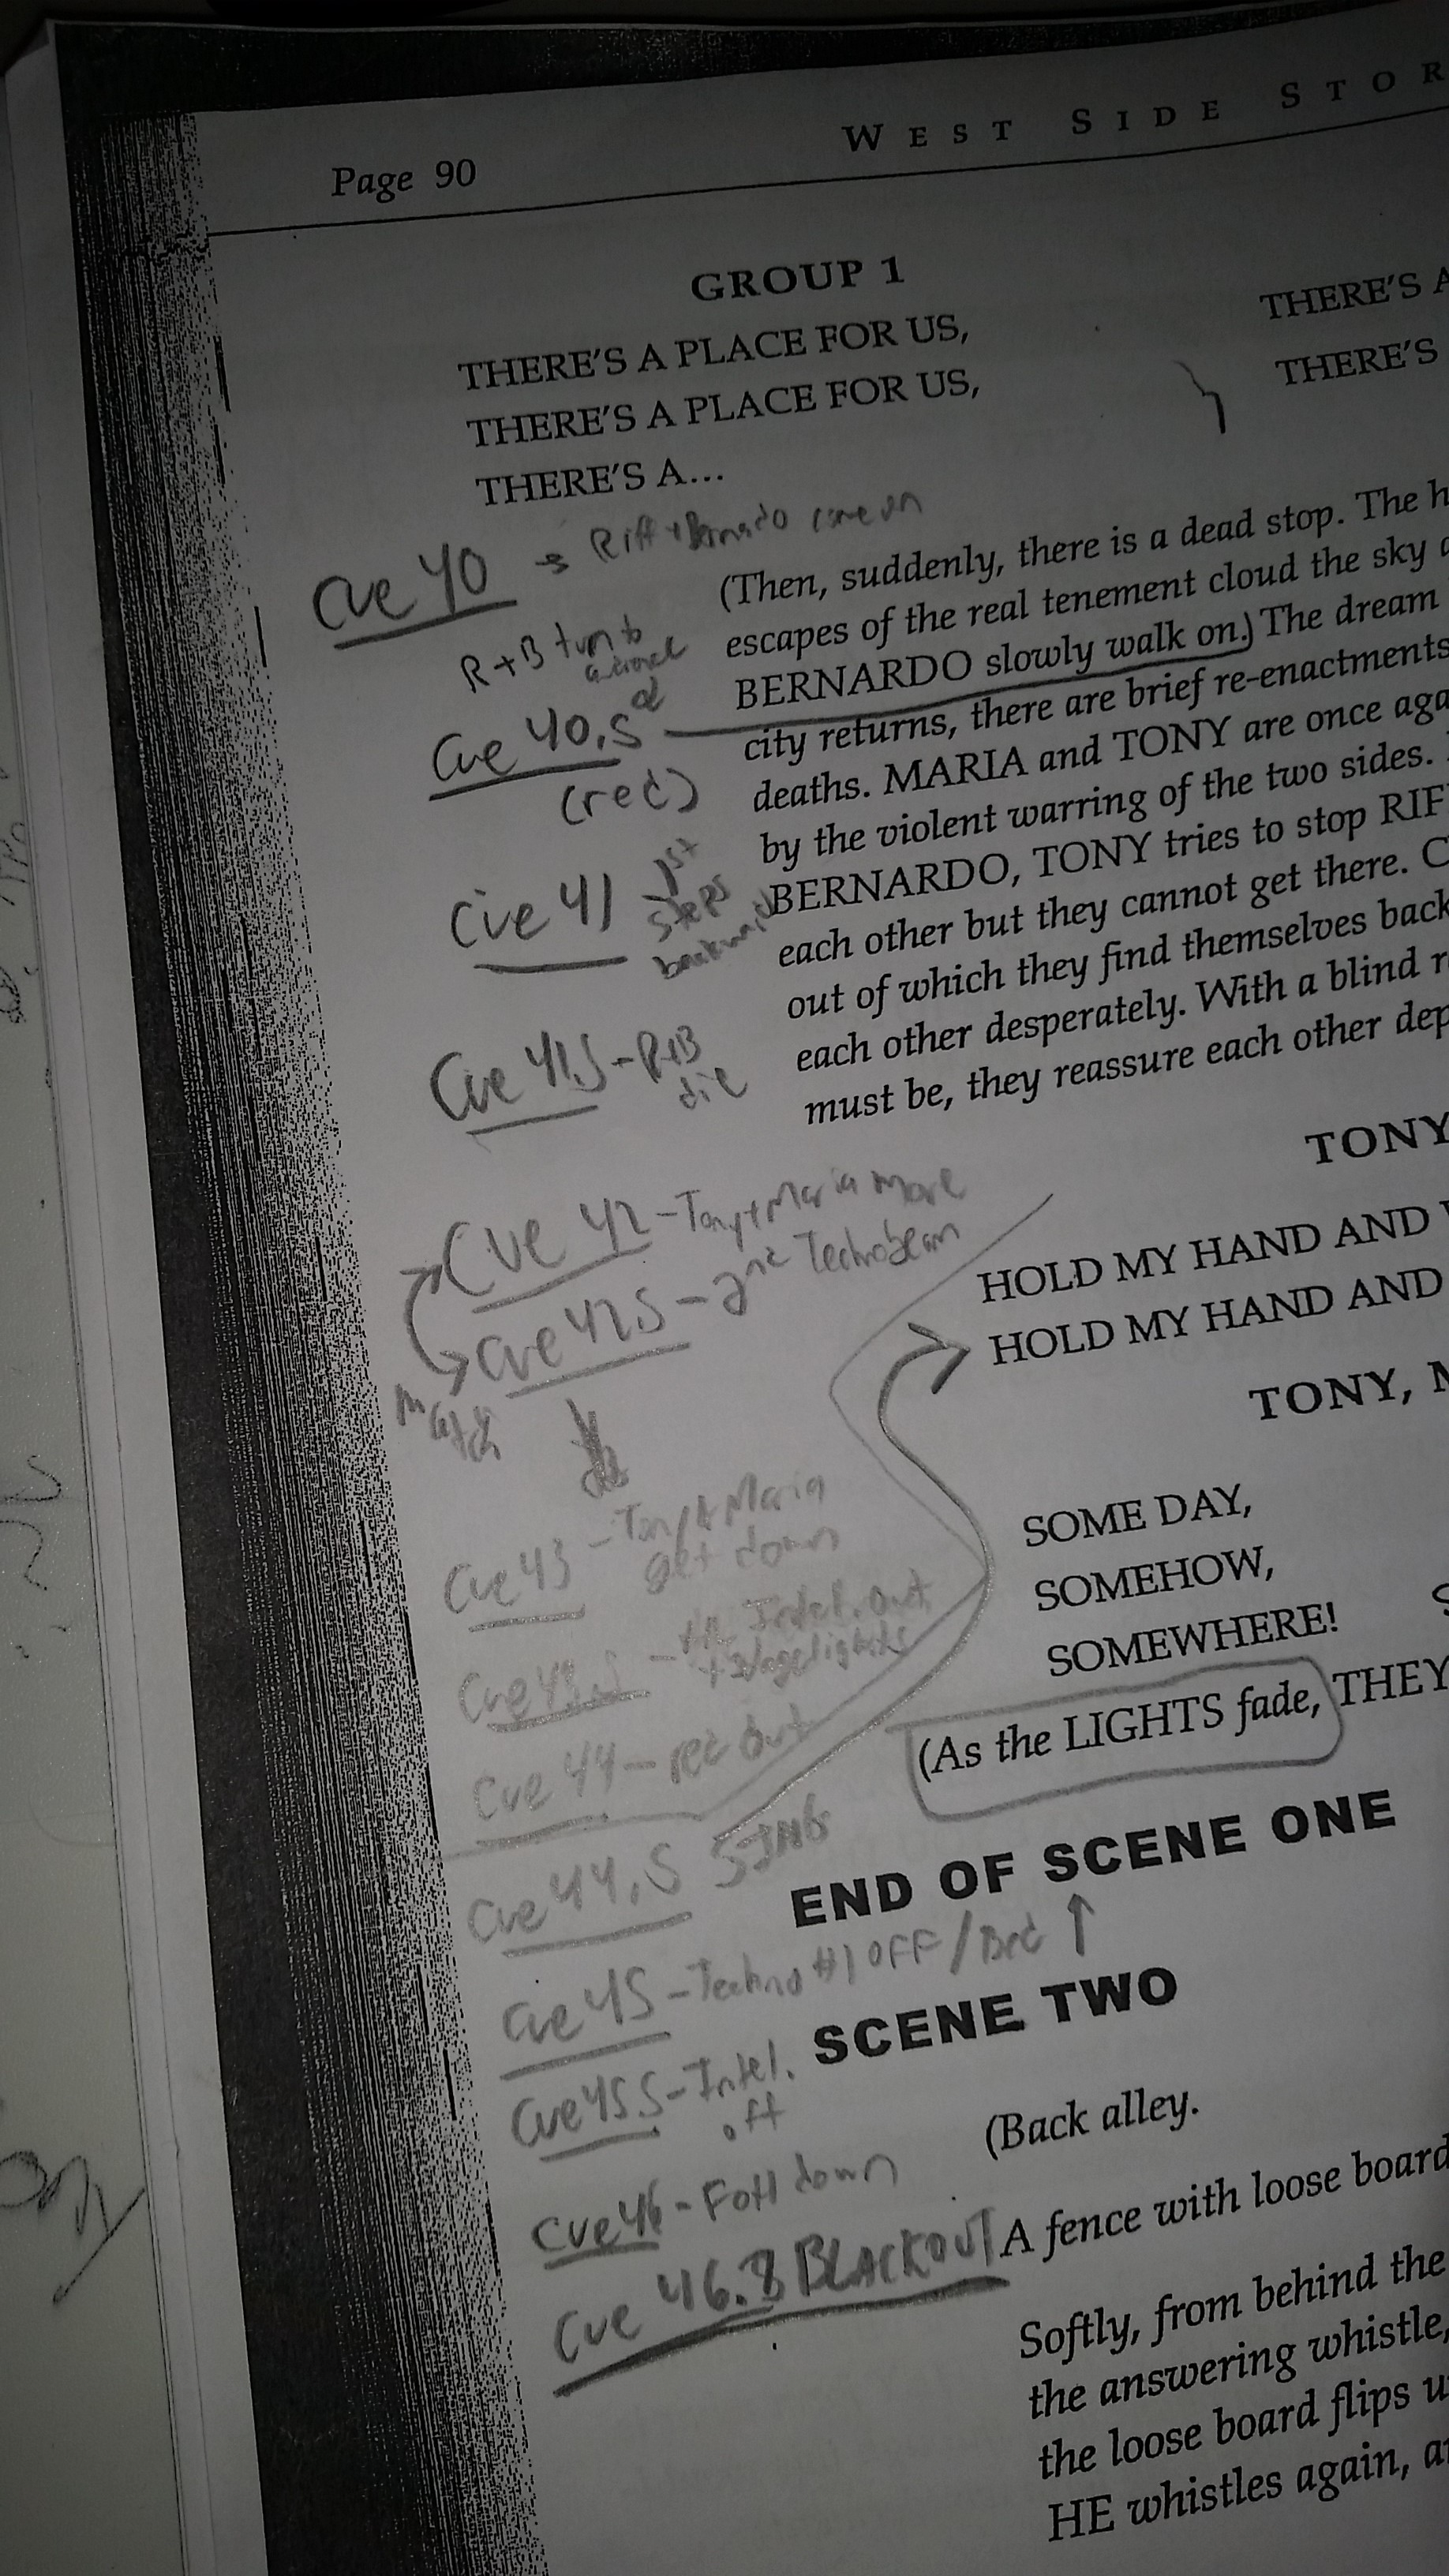 Page 90
WEST SIDE STOR
GROUP 1
THERE'S A PLACE FOR US,
THERE'S A PLACE FOR US,
THERE'S A...
THERE'S A
THERE'S
Cue 40 → Riff + Bernardo come on
(Then, suddenly, there is a dead stop. The h
escapes of the real tenement cloud the sky a
BERNARDO slowly walk on.) The dream
city returns, there are brief re-enactments
deaths. MARIA and TONY are once aga
by the violent warring of the two sides.
BERNARDO, TONY tries to stop RIF
each other but they cannot get there. C
out of which they find themselves back
each other desperately. With a blind r
must be, they reassure each other dep
R+B turn to
Cue 40.5
(red)
Cue 41 - 1st
steps
backwards
Cue 41.5 - R+B
die
Cue 42 - Tony + Maria move
Cue 42.5 - 2nd Technobeam
Match
TONY
HOLD MY HAND AND
HOLD MY HAND AND
TONY, M
Cue 43 - Tony + Maria
get down
Cue 43.5 - Intel. out
+ stagelights
Cue 44 - red out
Cue 44.5 SING
SOME DAY,
SOMEHOW,
SOMEWHERE!
(As the LIGHTS fade, THEY
END OF SCENE ONE
Cue 45 - Techno #1 OFF / Bed ↑
SCENE TWO
Cue 45.5 - Intel.
off
(Back alley.
Cue 46 - FOH down
Cue 46.8 BLACKOUT
A fence with loose board
Softly, from behind the
the answering whistle,
the loose board flips u
HE whistles again, a